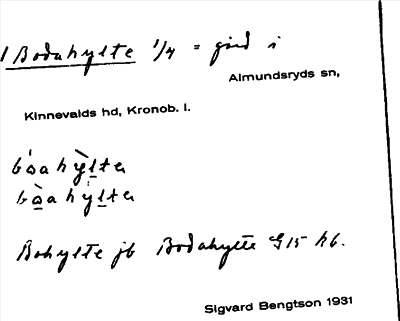 1 Bodahylte 1/4 = gård i
Almundsryds sn,
Kinnevalds hd, Kronob. l.
bóahỳlta
bòahylta
Bohylte jb Bodahytte G15 hb.
Sigvard Bengtson 1931